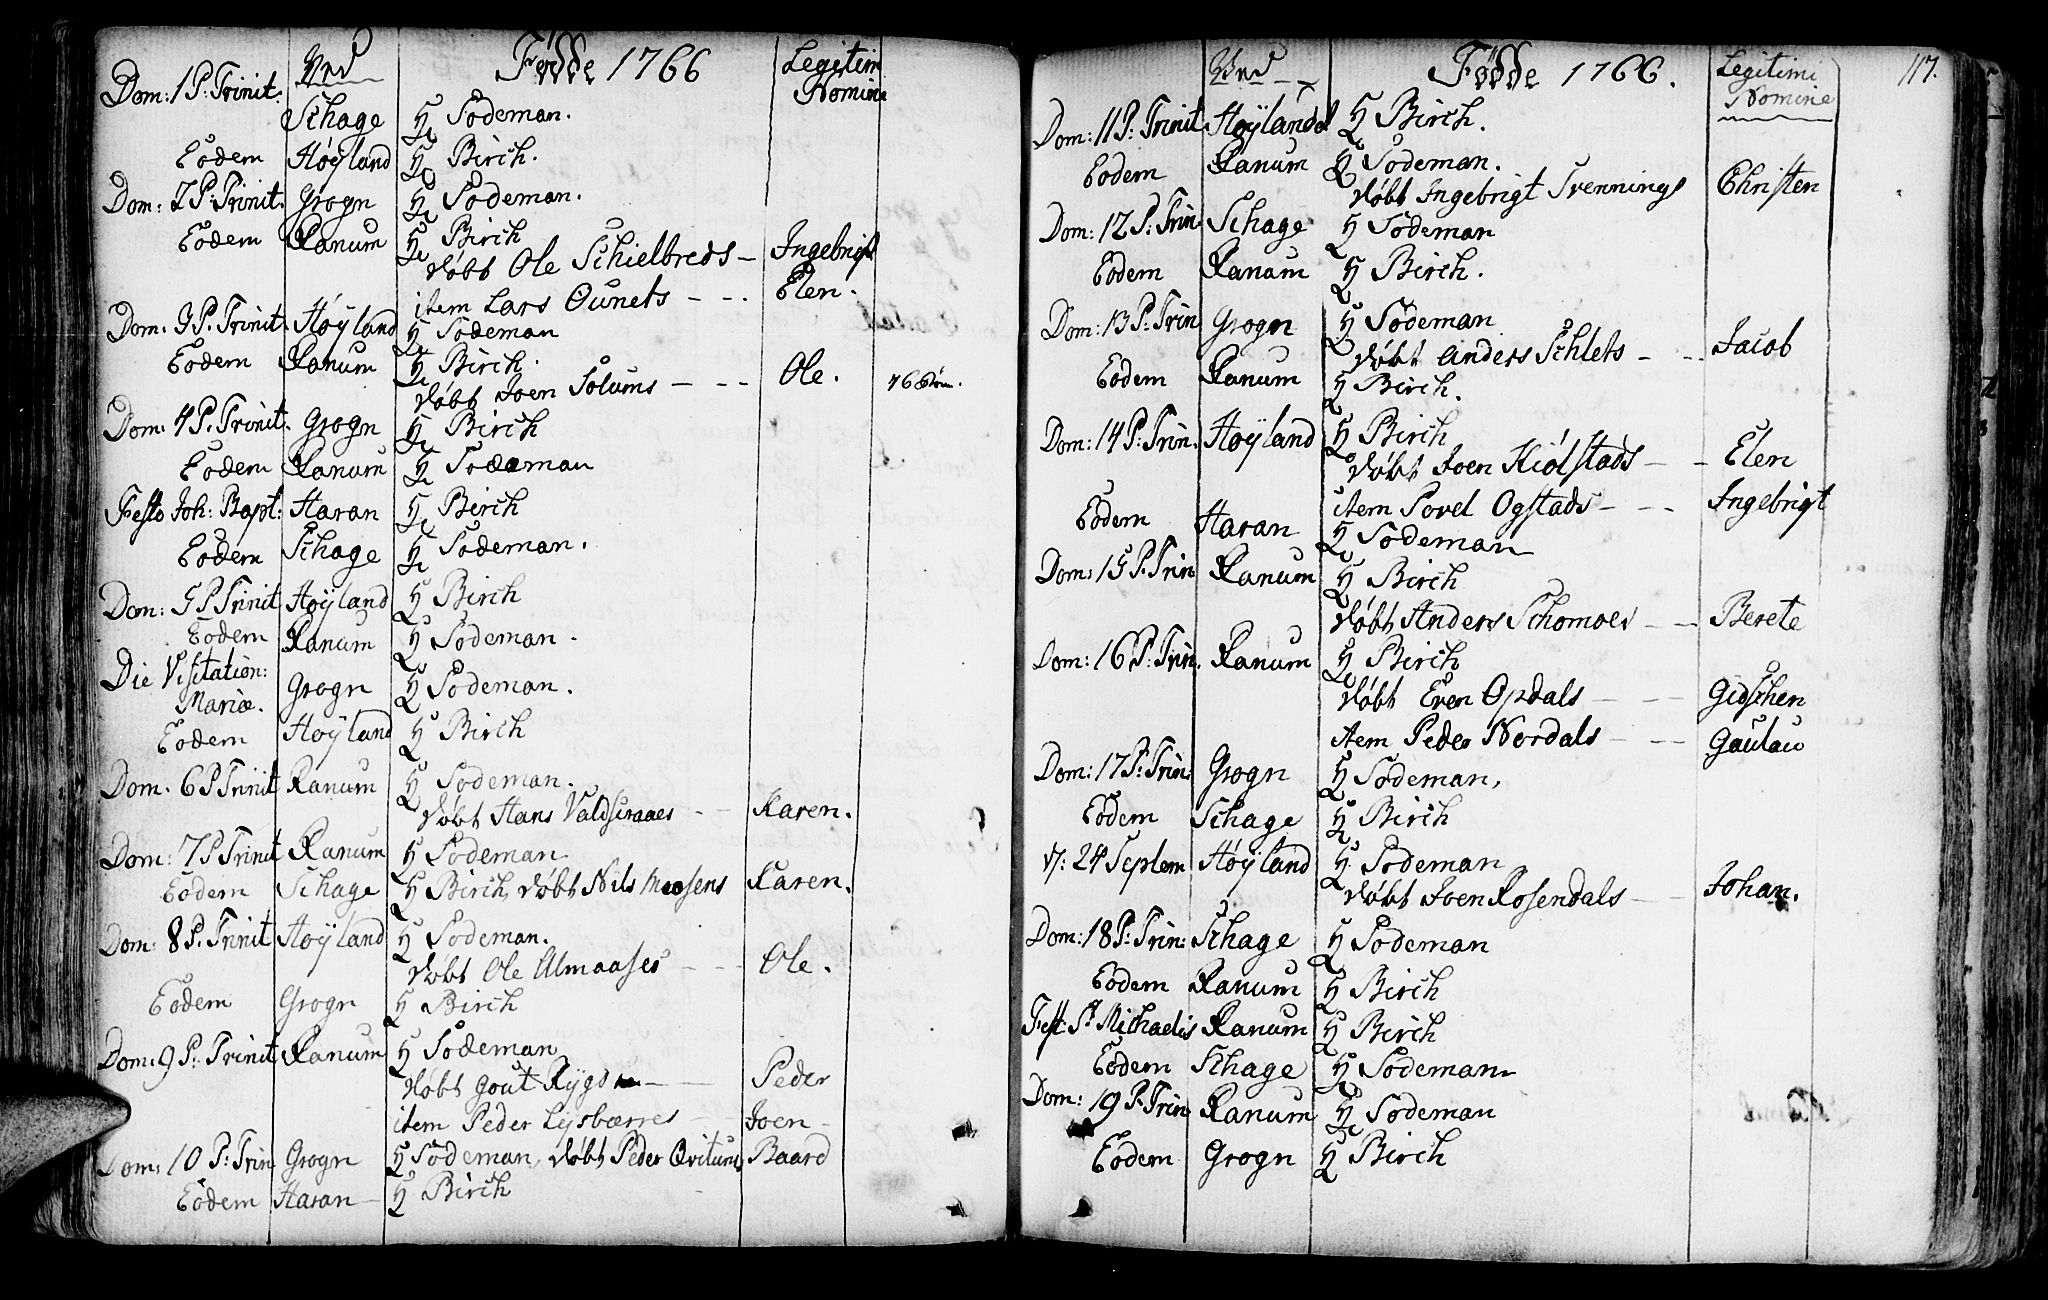 Ved Fødde 1766 Legitim
Nomine
Dom: 1 P: Trinit: Schage H Sodeman.
Eodem Høyland H Birch.
Dom: 2 P: Trinit. Grogn H Sodeman.
Eodem Ranum H Birch
døbt Ole Schielbreds – Ingebrigt
item Lars Øunets – – . Elen.
Dom. 3 P. Trinit. Høyland H Sodeman
Eodem Ranum H Birch.
døbt Joen Solums – – – Ole.
Dom: 4 P. Trinit. Grogn H Birch
Eodem Ranum H Sodeman
Festo Joh: Bapt: Haran H Birch
Eodem Schage H Sodeman.
Dom: 5 P Trinit Høyland H Birch
Eodem Ranum H Sodeman.
Die Visitation:
Mariæ. Grogn H Sodeman.
Eodem Høyland H Birch
Dom. 6 P Trinit Ranum H Sodeman.
døbt Hans Valdscraaes – – Karen.
Dom: 7 P Trinit Ranum H Sodeman
Eodem Schage H Birch, døbt Nils Moesens Karen.
Dom: 8 P. Trinit Høyland H Sodeman.
døbt Ole Almaases – – Ole.
Eodem Grogn H Birch
Dom: 9 P: Trinit Ranum H Sodeman
døbt Gout Rygs – – Peder
item Peder Leysbærres – Joen –
Dom: 10 P: Trin Grogn H Sodeman, døbt Peder Qvitums Baard
Eodem Haran – H Birch
Ved – Fødde 1766. Legitimi 117.
Nomine
Dom: 11 P: Trinit Høylandet H Birch.
Eodem Ranum H Sodeman.
døbt Ingebrigt Svennings Christen
Dom: 12 P: Trin Schage H Sodeman
Eodem Ranum H Birch.
Dom: 13 P: Trin Grogn H Sodeman
døbt Anders Schlets – – Jacob
Eodem Ranum H Birch.
Dom: 14 P: Trin. Høyland H Birch
døbt Joen Kiølstads – – Elen
item Povel Ogstads – – – Ingebrigt
Eodem Haran H Sodeman
Dom: 15 P. Trin Ranum H Birch
døbt Anders Schomoes – – Berete
Dom: 16 P: Trin. Ranum H Birch
døbt Even Opdals – – – Gidschen
item Peder Nordals – – – Gaulau
Dom: 17 P: Trin: Grogn H Sodeman,
Eodem Schage H Birch
d: 24 Septem Høyland H Sodeman
døbt Joen Rosendals – – Johan.
Dom: 18 P: Trin: Schage H Sodeman
Eodem Ranum H Birch
Fest St Michaelis Ranum H Birch
Eodem Schage H Sodeman
Dom: 19 P. Trin Ranum H Sodeman
Eodem Grogn H Birch